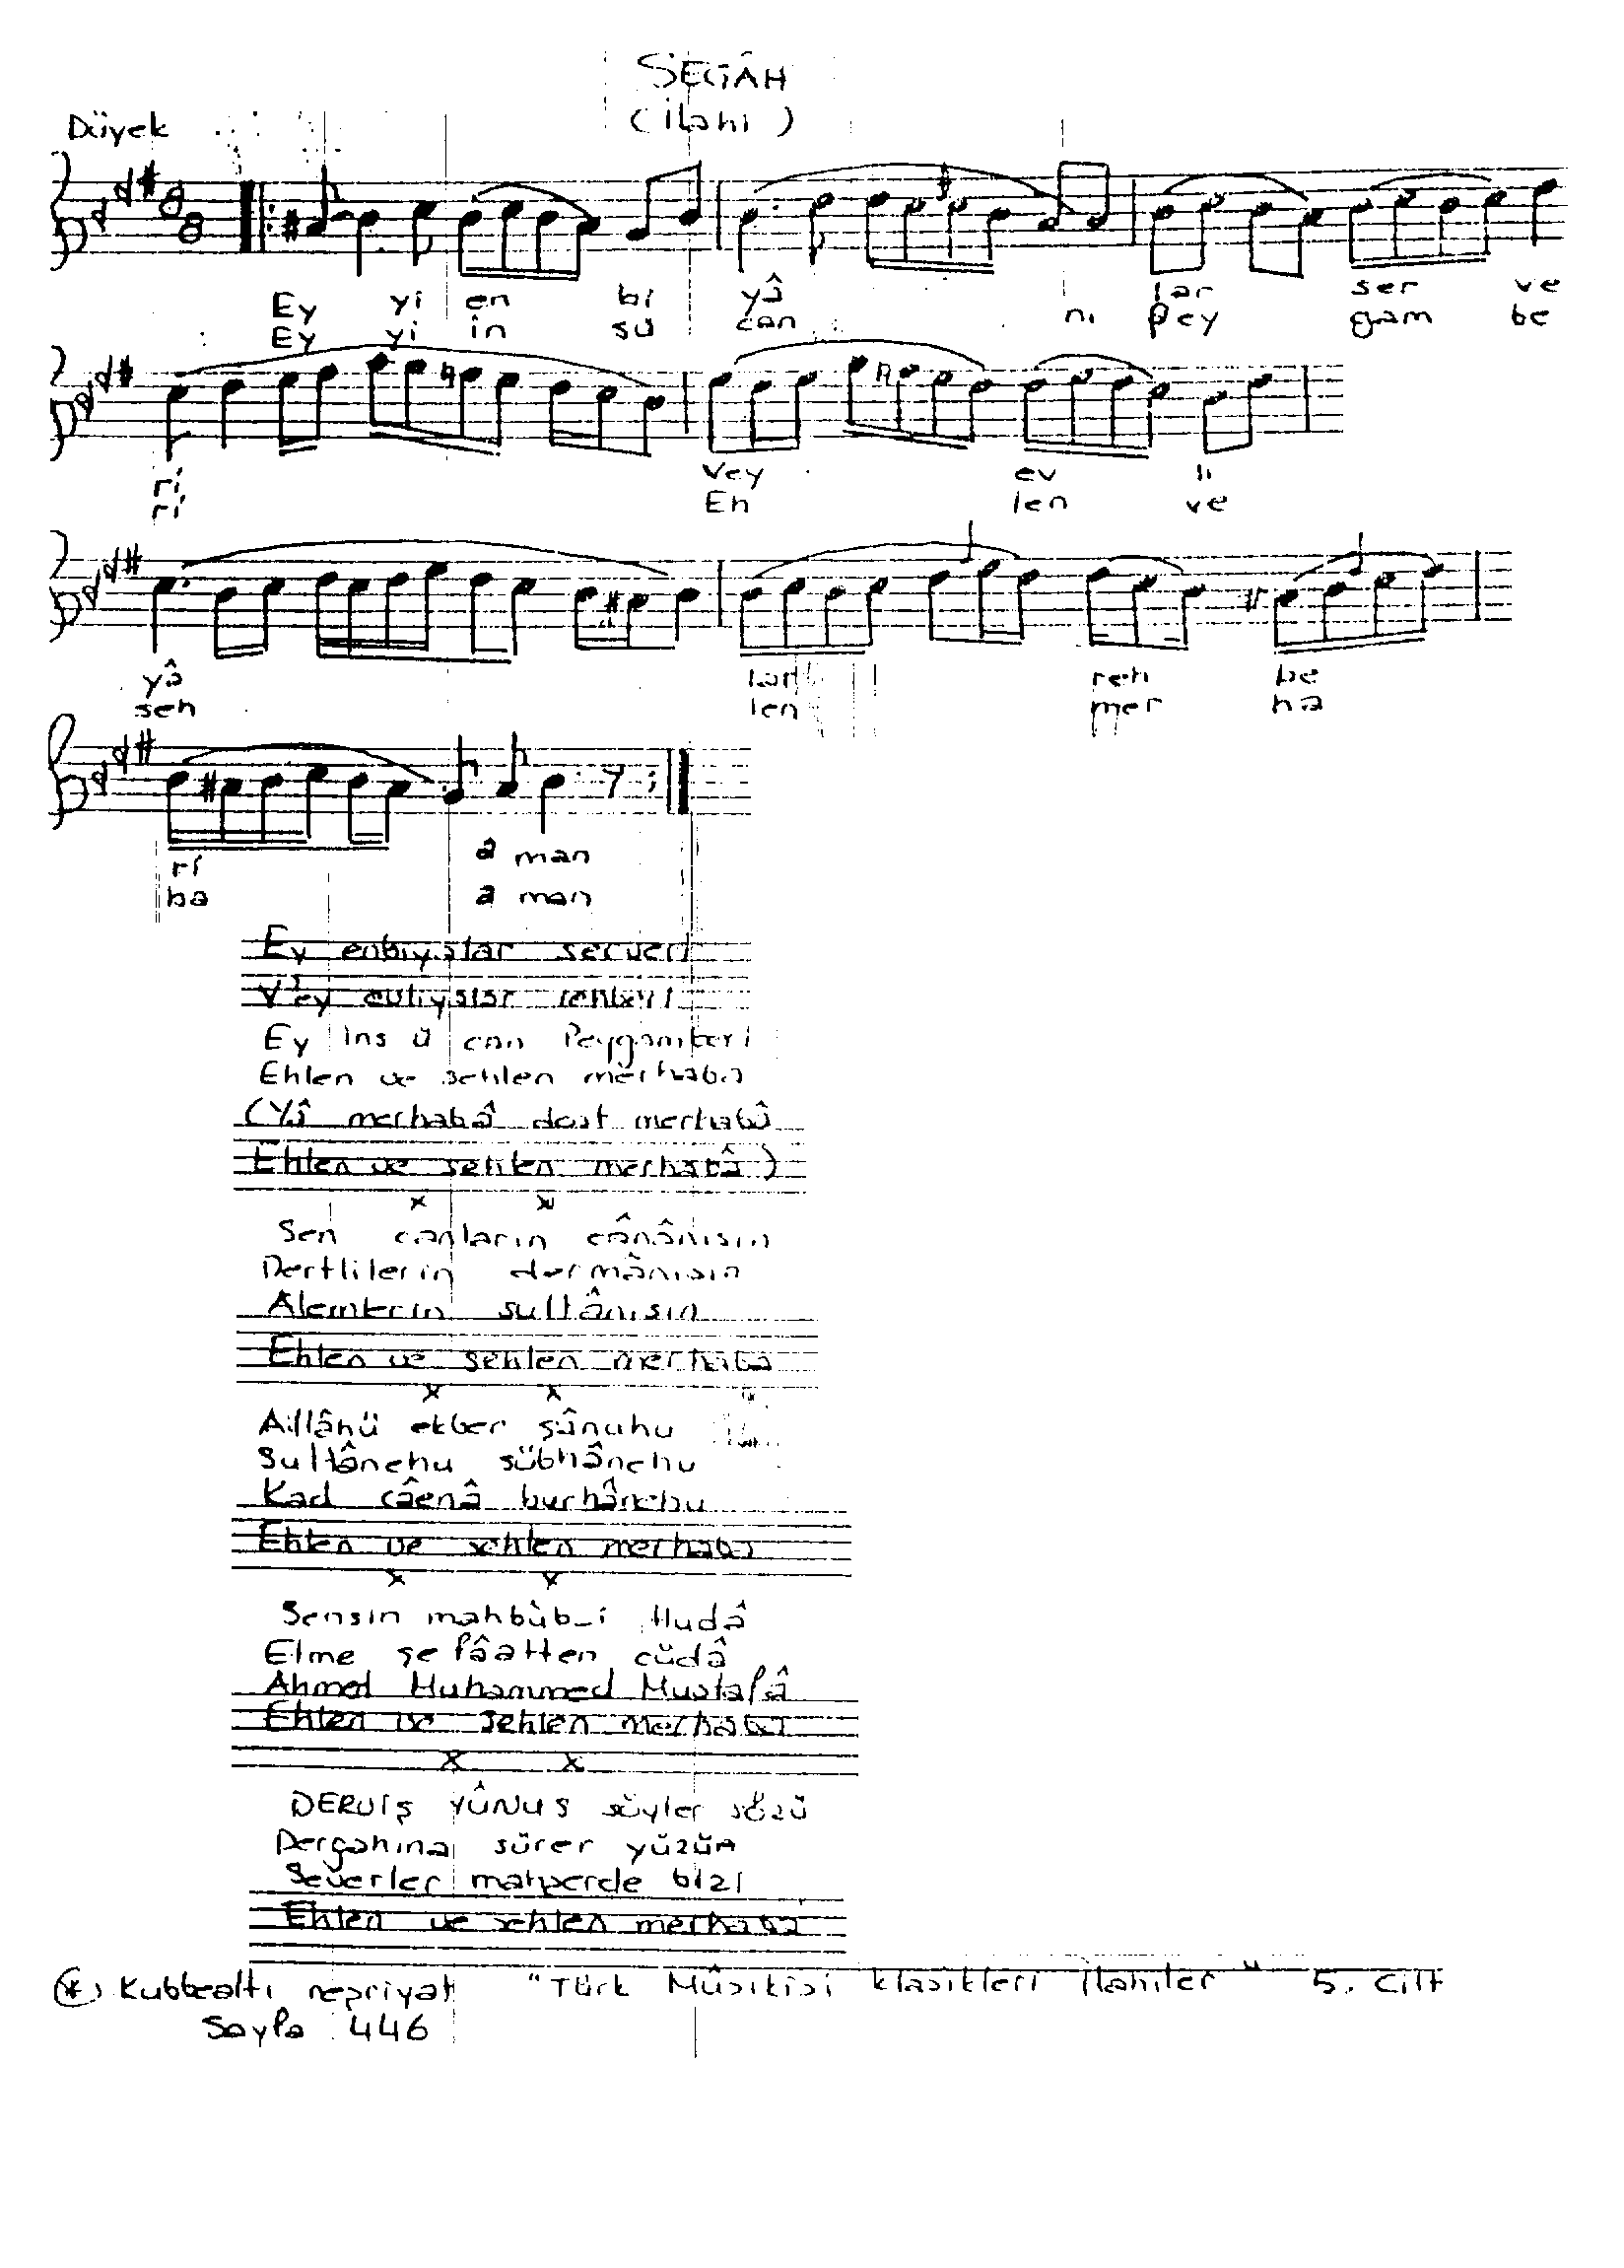 SEGÂH
(İlahi)
Düyek
Ey yi en bi yâ lar ser ve
Ey yi in sü can nı Pey gam be
ri Vey ev li
ri Eh len ve
yâ lar reh be
seh len mer ha
ri â man
ba a man
Ey enbiyalar serveri
V'ey evliyalar rehberi
Ey ins ü can Peygamberi
Ehlen ve sehlen merhaba
(Yâ merhabâ dost merhabâ
Ehlen ve sehlen merhabâ)
x x
Sen canların cânânısın
Dertlilerin dermânısın
Alemlerin sultânısın
Ehlen ve sehlen merhaba
x x
Allâhü ekber şânuhu
Sultânehu sübhânehu
Kad câenâ burhânehu
Ehlen ve sehlen merhaba
x x
Sensin mahbûb-i Hudâ
Etme şefâatten cüdâ
Ahmed Muhammed Mustafâ
Ehlen ve sehlen merhaba
x x
DERVİŞ YÛNUS söyler sözü
Dergahına sürer yüzün
Severler mahşerde bizi
Ehlen ve sehlen merhaba
(*) Kubbealtı neşriyat "Türk Mûsıkisi klasikleri ilahiler" 5. Cilt
Sayfa 446